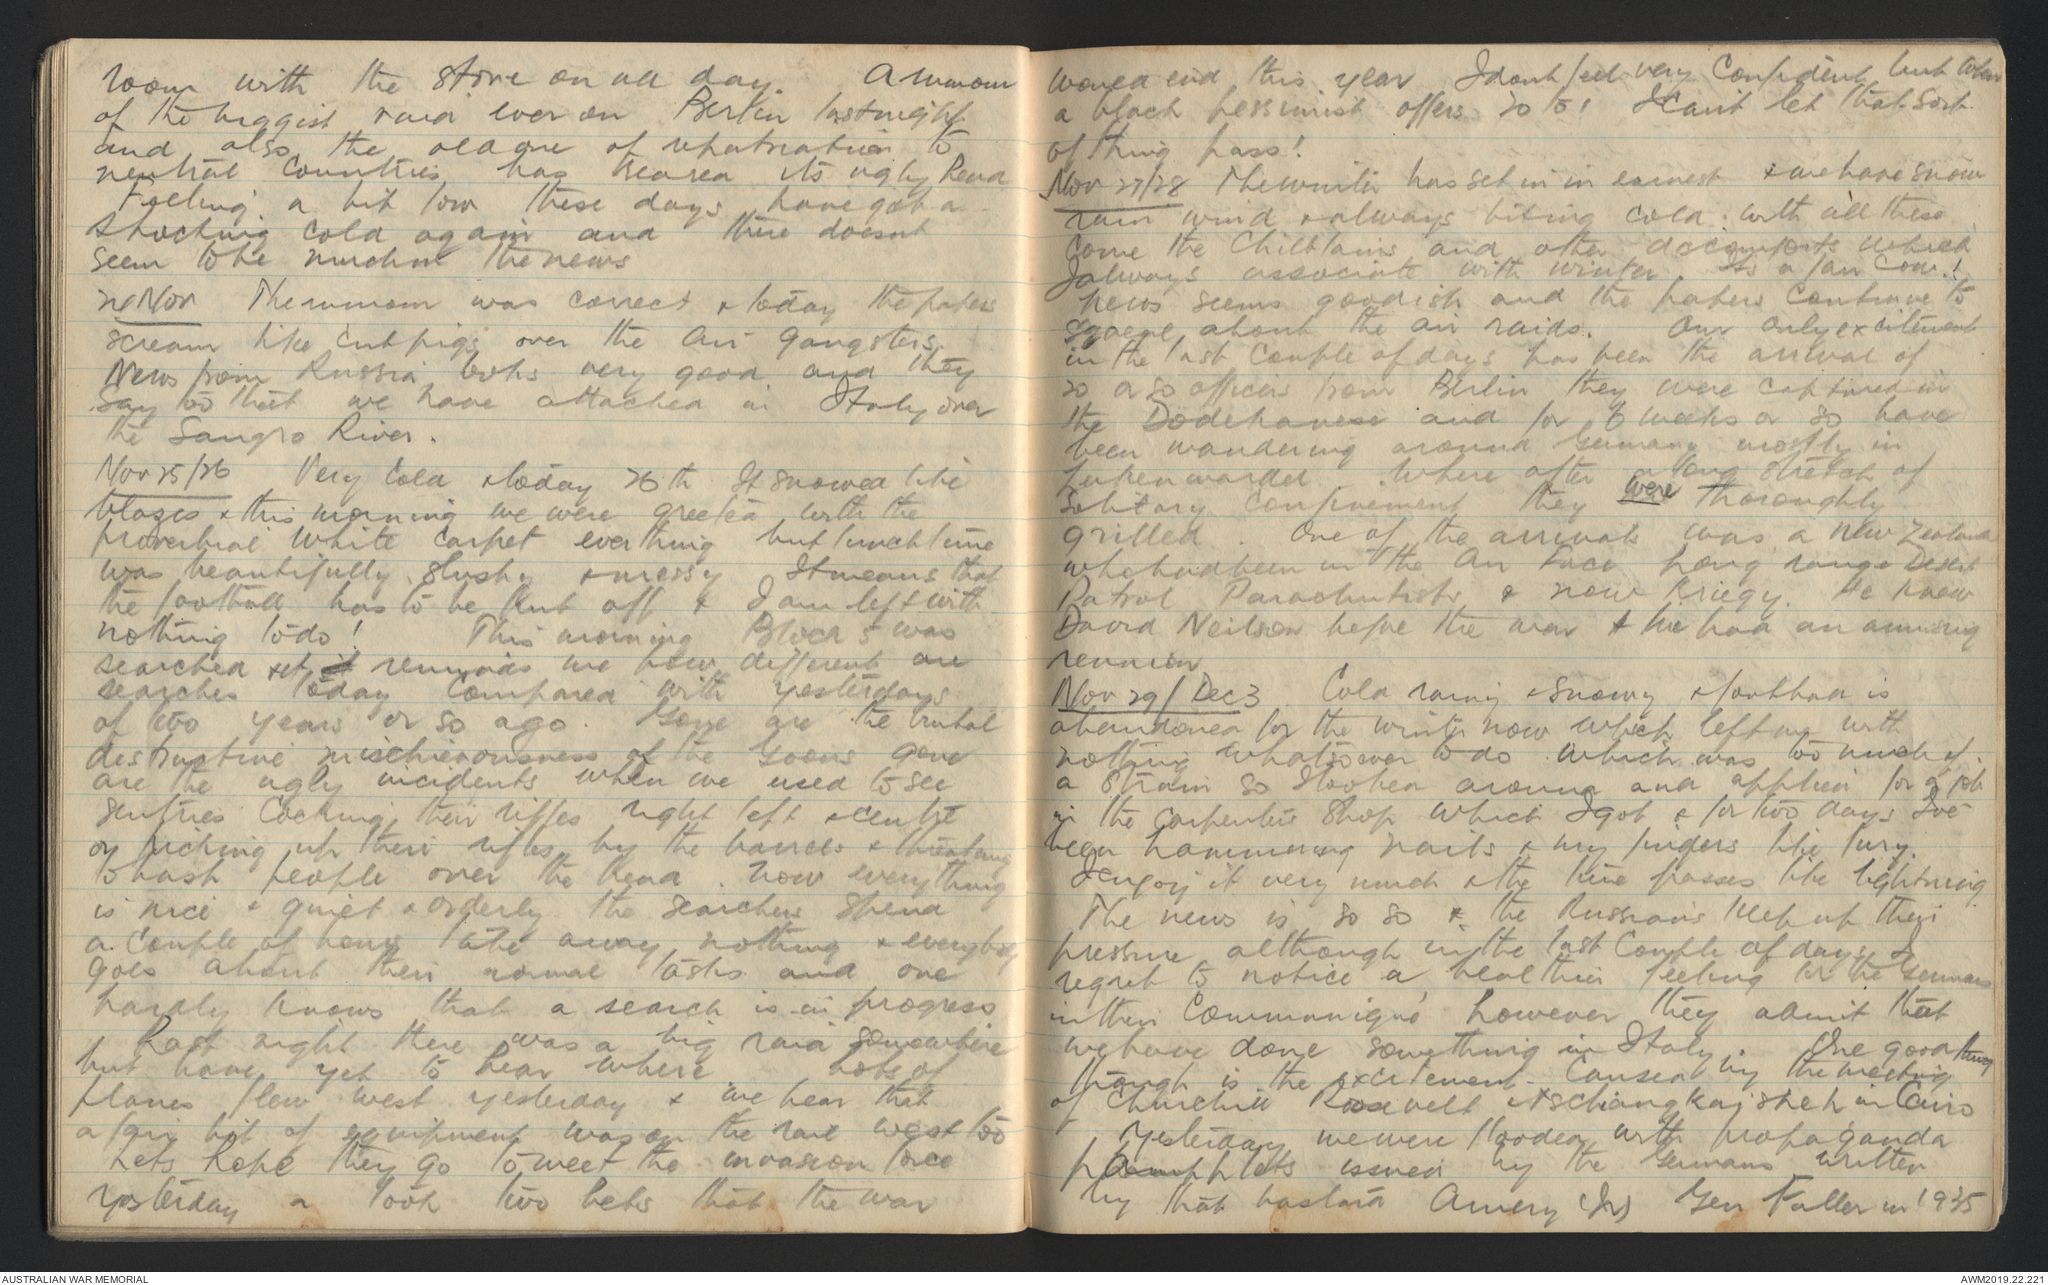 room with the stove on all day. A rumour
of the biggest raid ever on Berlin last night
and also the old one of repatriation to
neutral countries has reared its ugly head
Feeling a bit low these days have got a
shocking cold again and there doesnt
seem to be much in the news
24 Nov The rumour was correct & today the papers
scream like cut pigs over the Air Gangsters.
News from Russia looks very good and they
say too that we have attacked in Italy over
the Sangro River.
Nov 25/26 Very Cold & today 26th It snowed like
blazes & this morning we were greeted with the
proverbial white carpet everthing but lunchtime
was beautifully slushy & messy It means that
the football has to be put off & I am left with
nothing to do! This morning Block 5 was
searched & it reminds me how different are
searches today compared with yesterdays
of two years or so ago. Gone are the brutal
destructive mischieviousness of the Goons gone
are the ugly incidents when we used to see
sentries Cocking their rifles right left & centre
or picking up their rifles by the barrels & threatening
to bash people over the head. Now everything
is nice & quiet & orderly the searchers spend
a couple of hours take away nothing & everybody
goes about their normal tasks and one
hardly knows that a search is in progress
Last night there was a big raid somewhere
but have yet to hear where Lots of
planes flew west yesterday & we hear that
a fair bit of equipment was on the rail west too
Lets hope they go to meet the invasion force
Yesterday a took two bets that the war
would end this year I dont feel very Confident but when
a black pessimist offers 20 to 1 I can't let that sort
of thing pass!
Nov 27/28 The winter has set in in earnest & we have snow
rain wind & always biting cold. With all these
come the Chilblains and other discomforts which
I always associate with winter. I'm a fair cow!
News seems goodish and the papers continue to
squeal about the air raids. Our only excitement
in the last couple of days has been the arrival of
20 or so officers from Berlin they were captured in
the Dodekanese and for 6 weeks or so have
been wandering around Germany mostly in
Lukenwarded Where after a long stretch of
Solitary Confinement they were thoroughly
grilled. One of the arrivals was a New Zealand
who had been in the Air Force Long range Desert
Patrol Parachutists & now Kriegy. He knew
David Neilson before the war & he had an amusing
reunion
Nov 29/Dec 3 Cold rainy & snowy & football is
abandoned for the winter now which left me with
nothing whatsoever to do which was too much of
a strain so I looked around and applied for a job
in the carpenters shop which I got & for two days I've
been hammering nails & my fingers like fury.
I enjoy it very much & the time passes like lightning
The news is so so & the Russians keep up their
pressure although in the last couple of days I
regret to notice a healthier feeling for the Germans
in their Communiqué however they admit that
we have done something in Italy. One good thing
though is the excitement Caused by the meeting
of Churchill Roosevelt & Tschiangkaishek in Cairo
Yesterday we were flooded with propaganda
pamphlets issued by the Germans written
by that bastard Amery (Jr) Gen Fuller in 1935
AUSTRALIAN WAR MEMORIAL
AWM2019.22.221